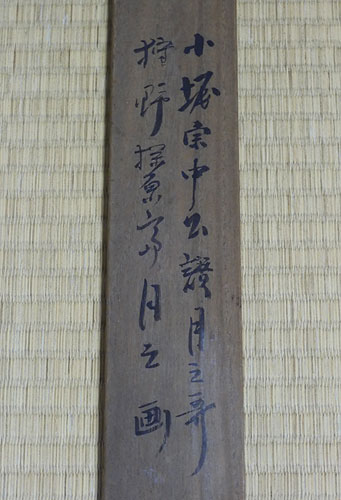 小堀宗中公讃月之哥
狩野探原斎月之画